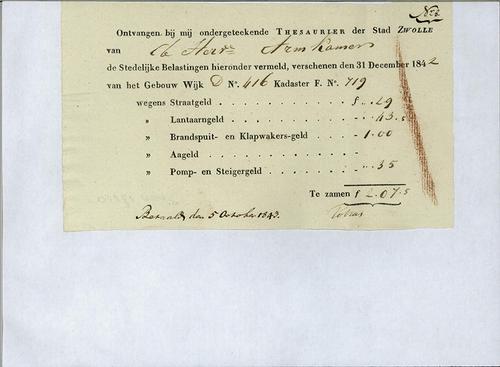 Ontvangen bij mij ondergeteekende THESAURIER der Stad ZWOLLE
van de Heer Armkamer
de Stedelijke Belastingen hieronder vermeld, verschenen den 31 December 1842
van het Gebouw Wijk D No. 416 Kadaster F. No. 719
wegens Straatgeld . . . . . . . . . f .. 29
„ Lantaarngeld . . . . . . . . . .. 43.5
„ Brandspuit- en Klapwakers-geld . . . . 1.00
„ Aageld . . . . . . . . . . . .
„ Pomp- en Steigergeld . . . . . . . .. 35
Te zamen f 2.07.5
Betaald den 5 October 1843.